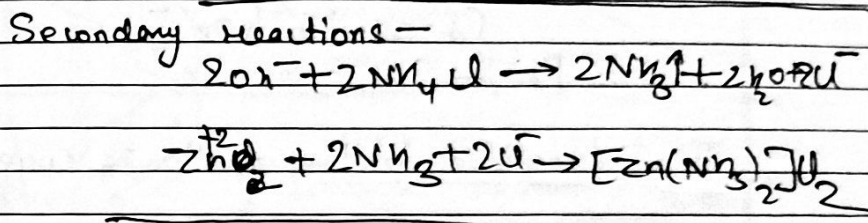 Secondary reactions —
2OH⁻ + 2NH₄Cl → 2NH₃↑ + 2H₂O + 2Cl⁻
Zn⁺² + 2NH₃ + 2Cl⁻ → [Zn(NH₃)₂]Cl₂